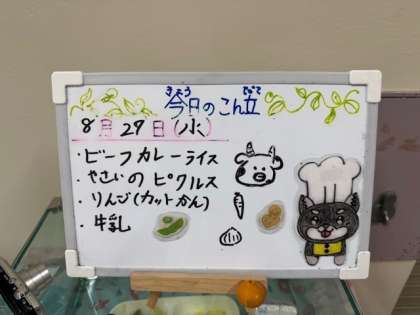 きょう だて
今日のこん立
8月29日(水)
・ビーフカレーライス
・やさいのピクルス
・りんご(カットかん)
・牛乳